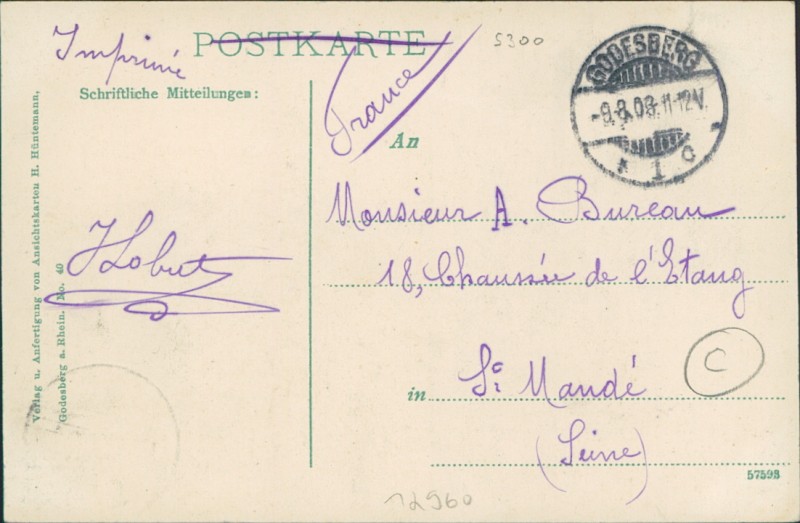 Imprimé
POSTKARTE
5300
Schriftliche Mitteilungen:
France
GODESBERG
-9.8.08.11-12V.
* 1 c
An
Monsieur A. Bureau
18, Chaussée de l'Etang
in St. Mandé
(Seine)
C
Verlag u. Anfertigung von Ansichtskarten H. Hüntemann,
Godesberg a. Rhein. No. 40
57593
12960